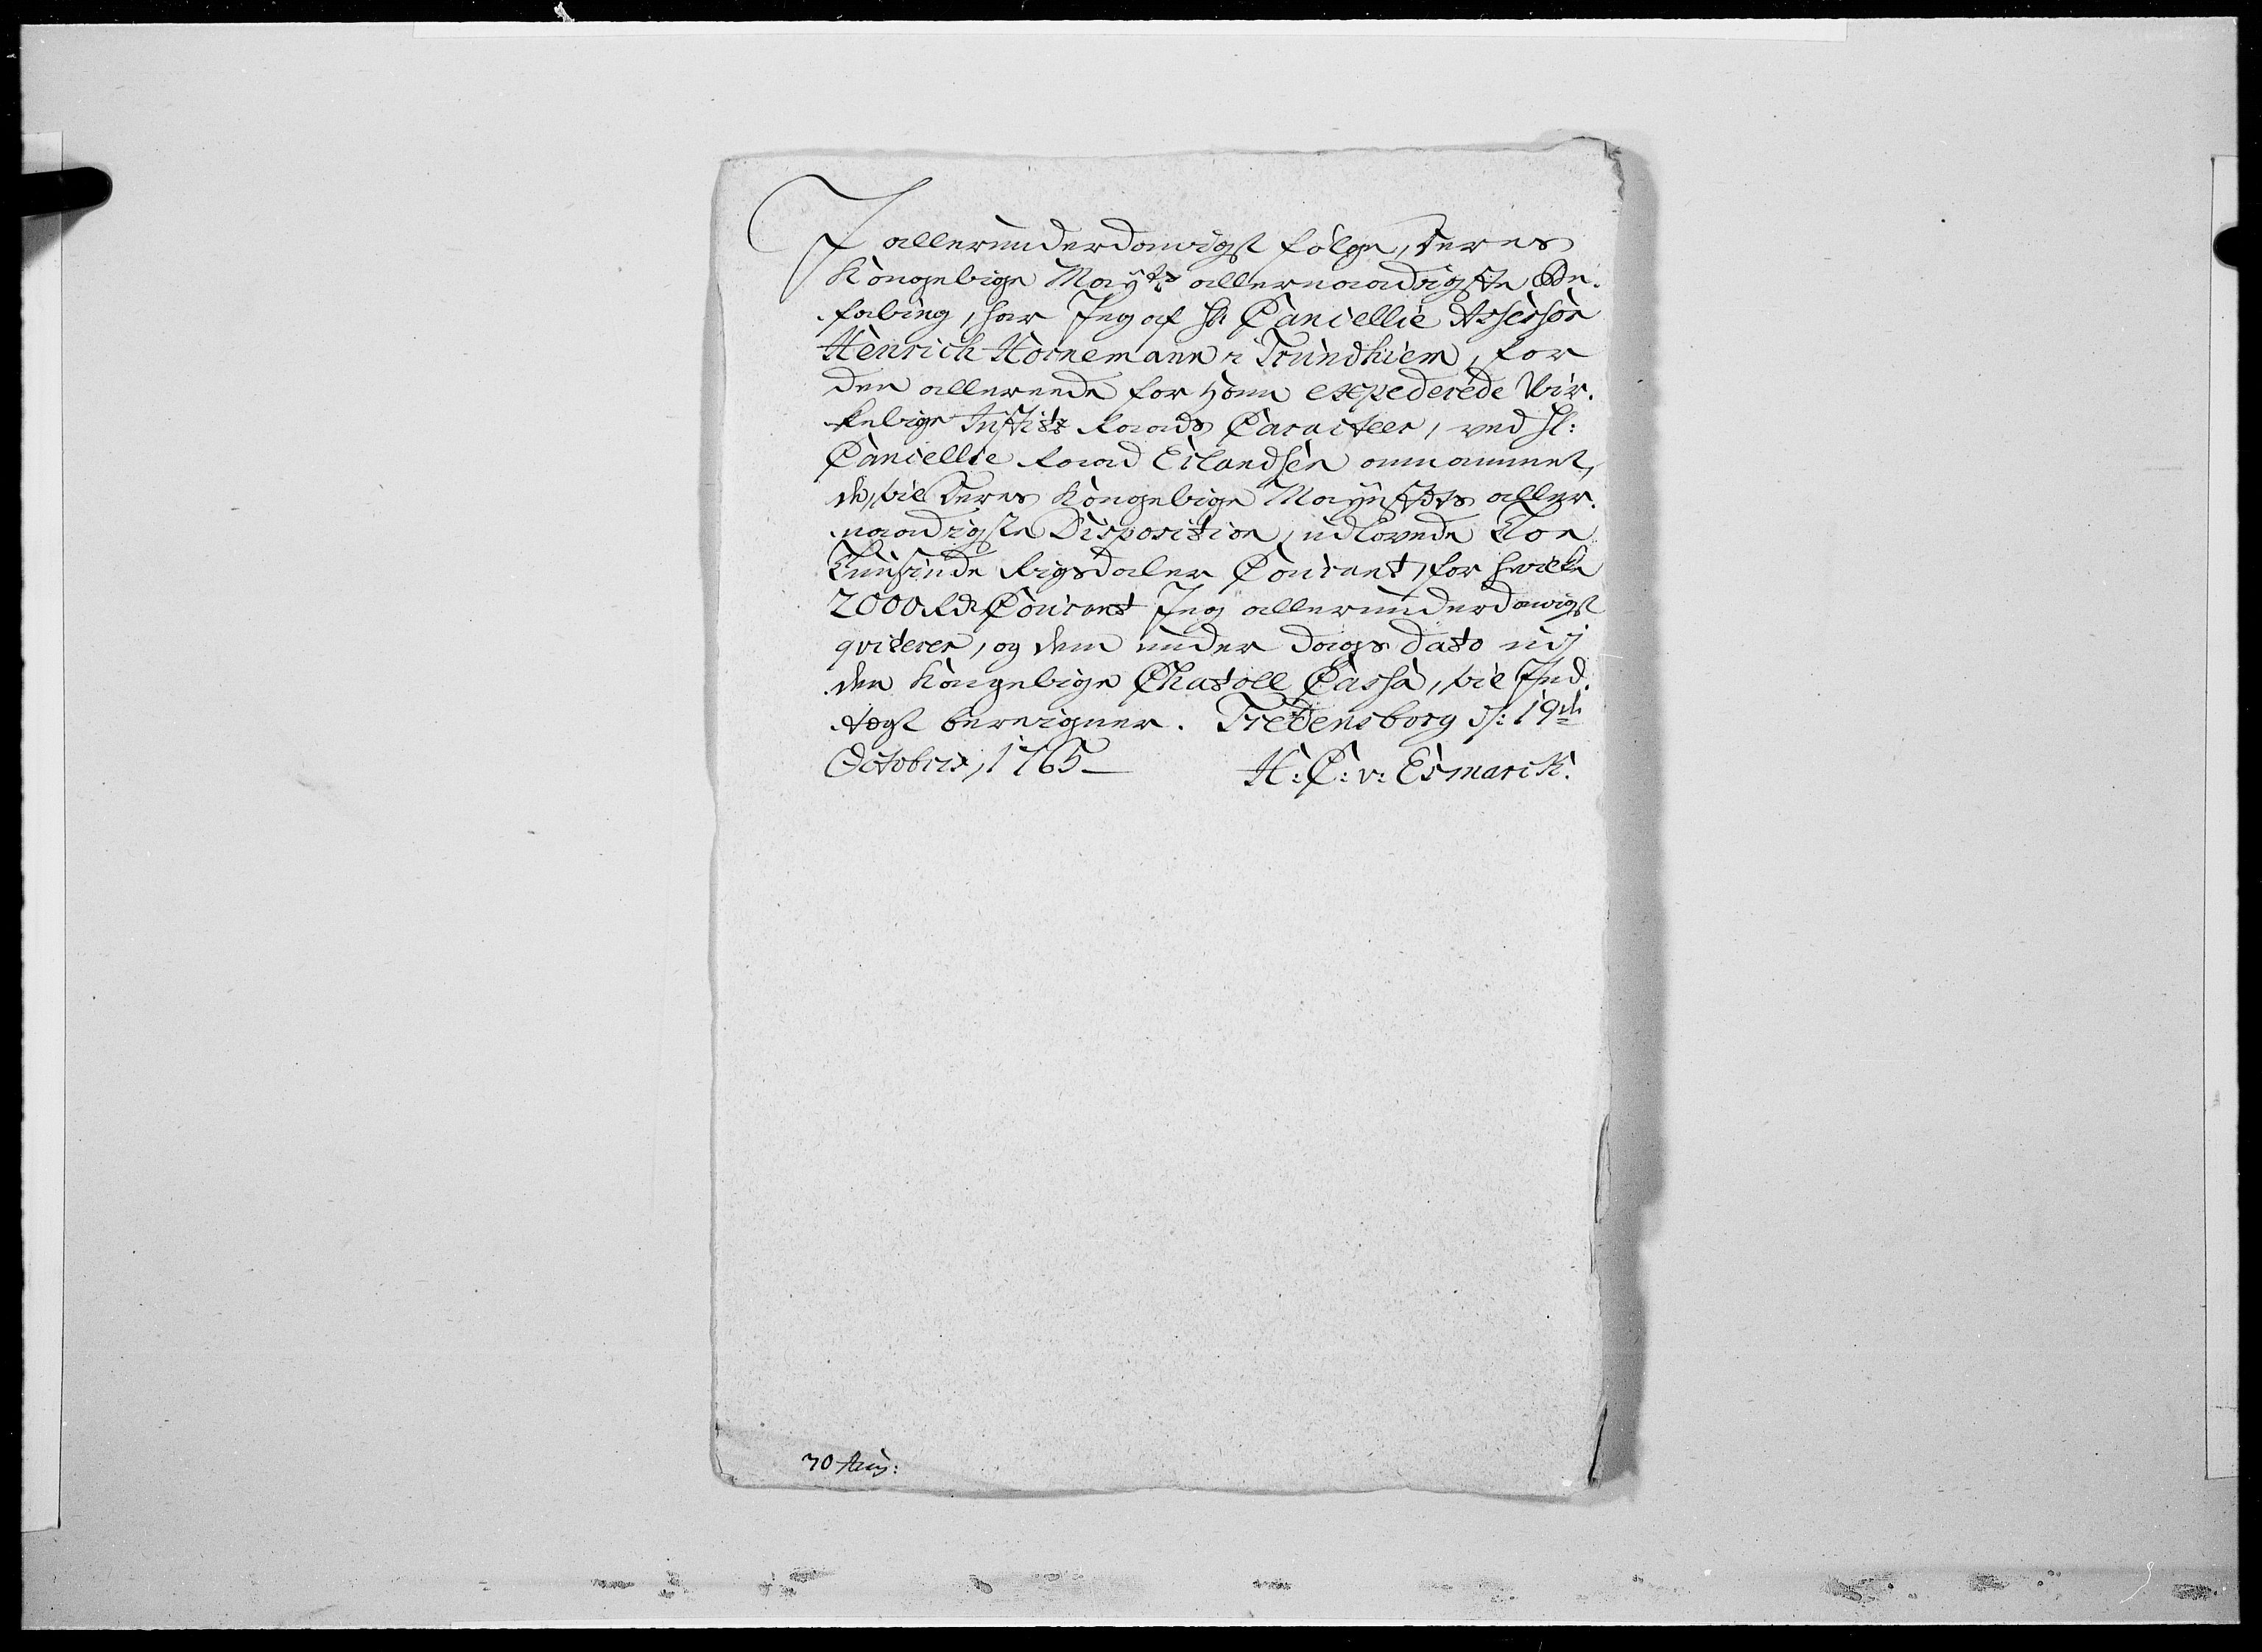 I allerunderdanigst følge, Deres
Kongelige Mayts allernaadigste Be-
faling, har Jeg af Hr Cancellie Assessor
Henrich Hornemann i Trundhiem, for
den allerede for ham expederede Wir-
kelige Justitz Raads Caracteer, ved Hr:
Cancellie Raad Eilandsen annammet,
de, til Deres Kongelige Mayestets aller-
naadigste Disposition, udlovede Toe
Tuusinde Rigsdaler Courant, for hvilke
2000 Rdr Courant Jeg allerunderdanigst
qviterer, og dem under Dags Dato udj
den Kongelige Chatoll Cassa, til Ind-
tægt beregner. Fredensborg d: 19de
Octobris, 1765
H: C: v: Esmarck.